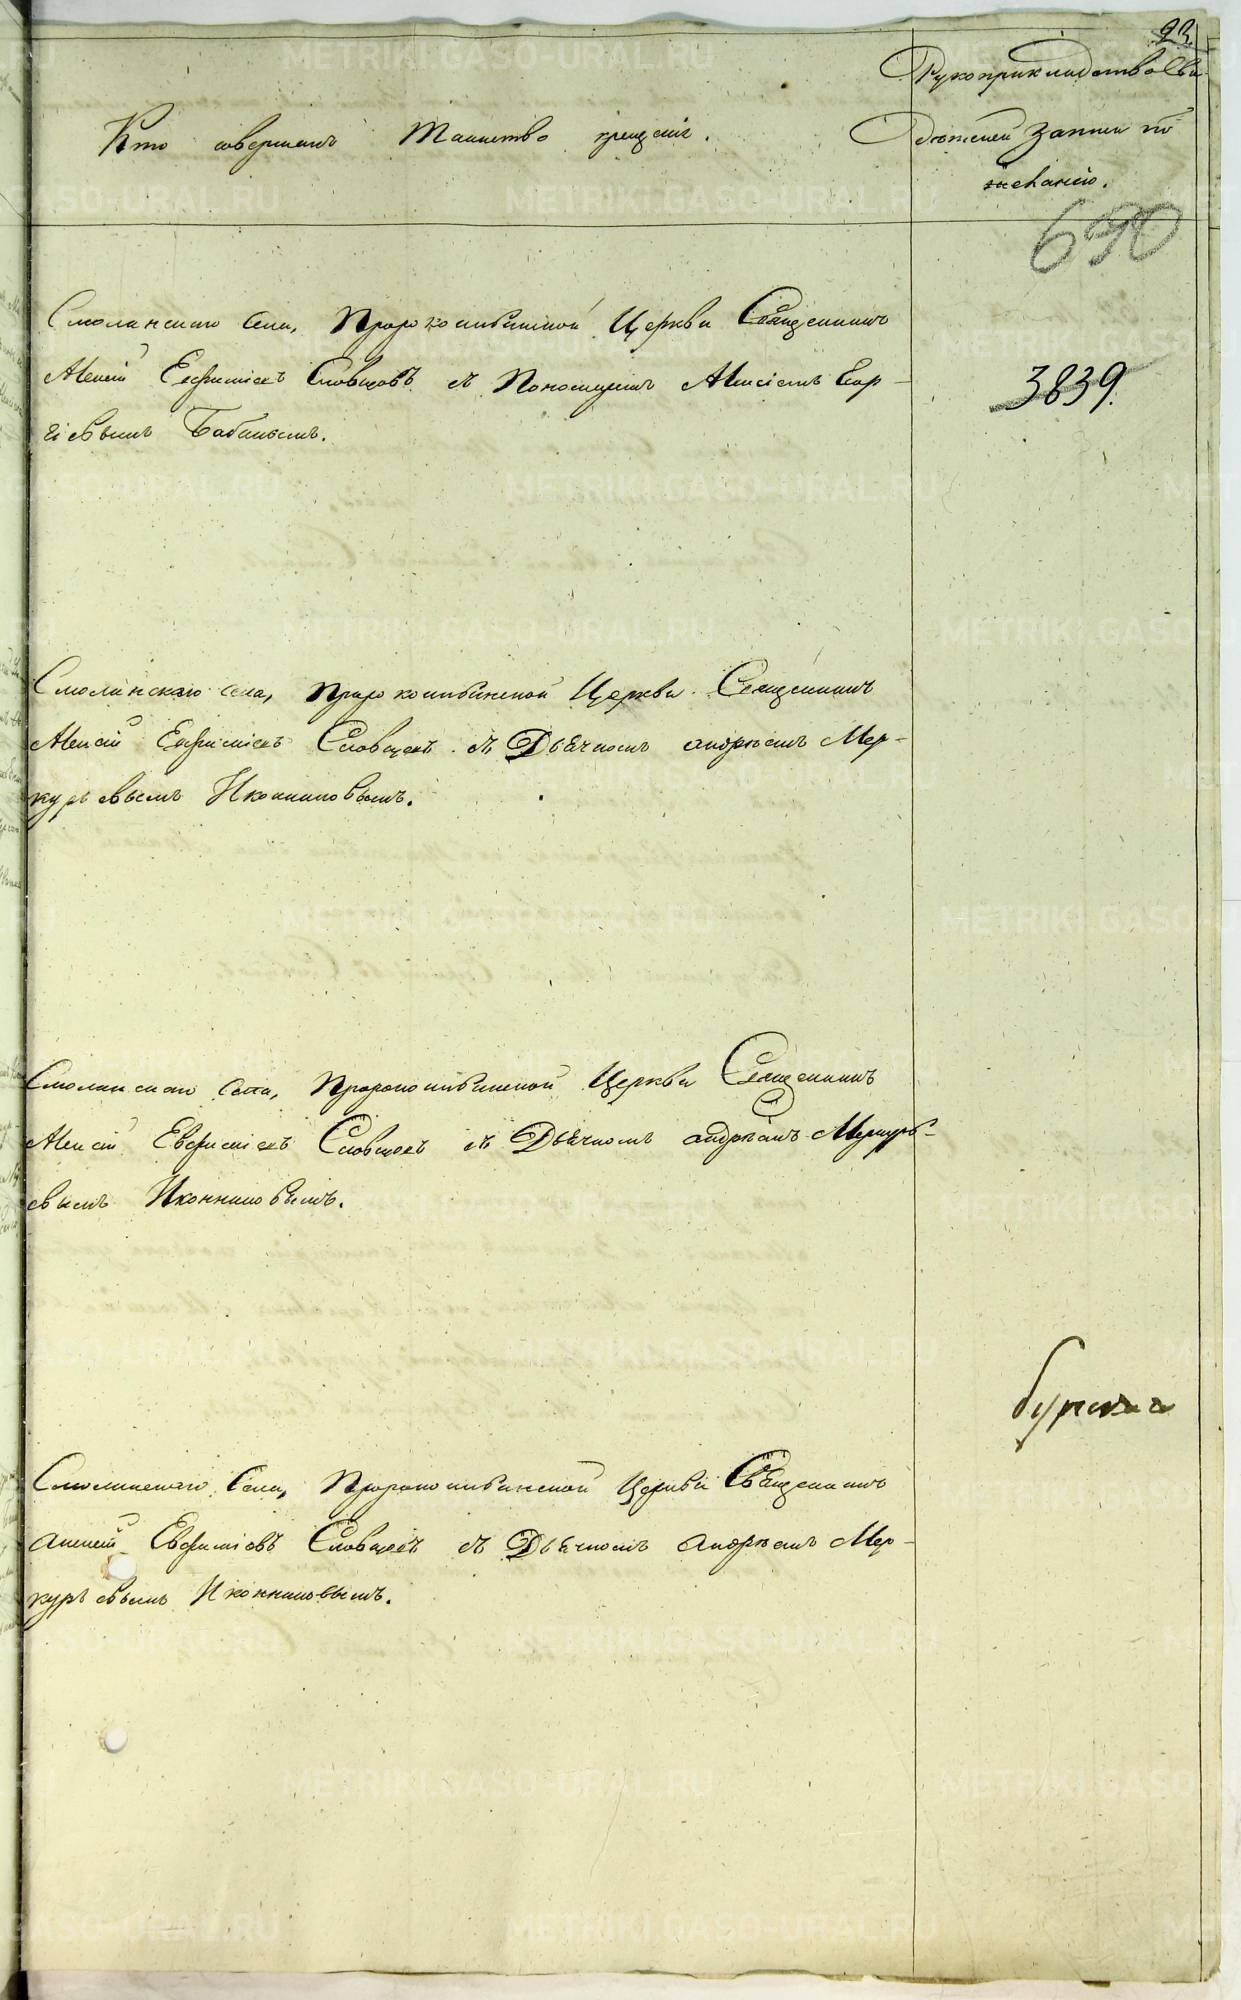 23.
Рукоприкладство Сви
Кто совершалъ Таинство крещенія.
дѣтелей записи по
желанію.
690
Смолинскаго Села, Пророкоильинской Церкви Священникъ
Алексѣй Евфиміевъ Словцовъ съ Пономаремъ Алексіемъ Геор-
гіевымъ Бабинымъ.
3839.
Смолинскаго Села, Пророкоильинской Церкви Священникъ
Алексѣй Евфиміевъ Словцевъ съ Дьячкомъ Андреемъ Мер-
курьевымъ Иконниковымъ.
Смолинскаго Села, Пророкоильинской Церкви Священникъ
Алексѣй Евфиміевъ Словцевъ съ Дьячкомъ Андреемъ Меркурь-
евымъ Иконниковымъ.
Смолинскаго Села, Пророкоильинской Церкви Священникъ
Алексѣй Евфиміевъ Словцевъ съ Дьячкомъ Андреемъ Мер-
курьевымъ Иконниковымъ.
METRIKI.GASO-URAL.RU